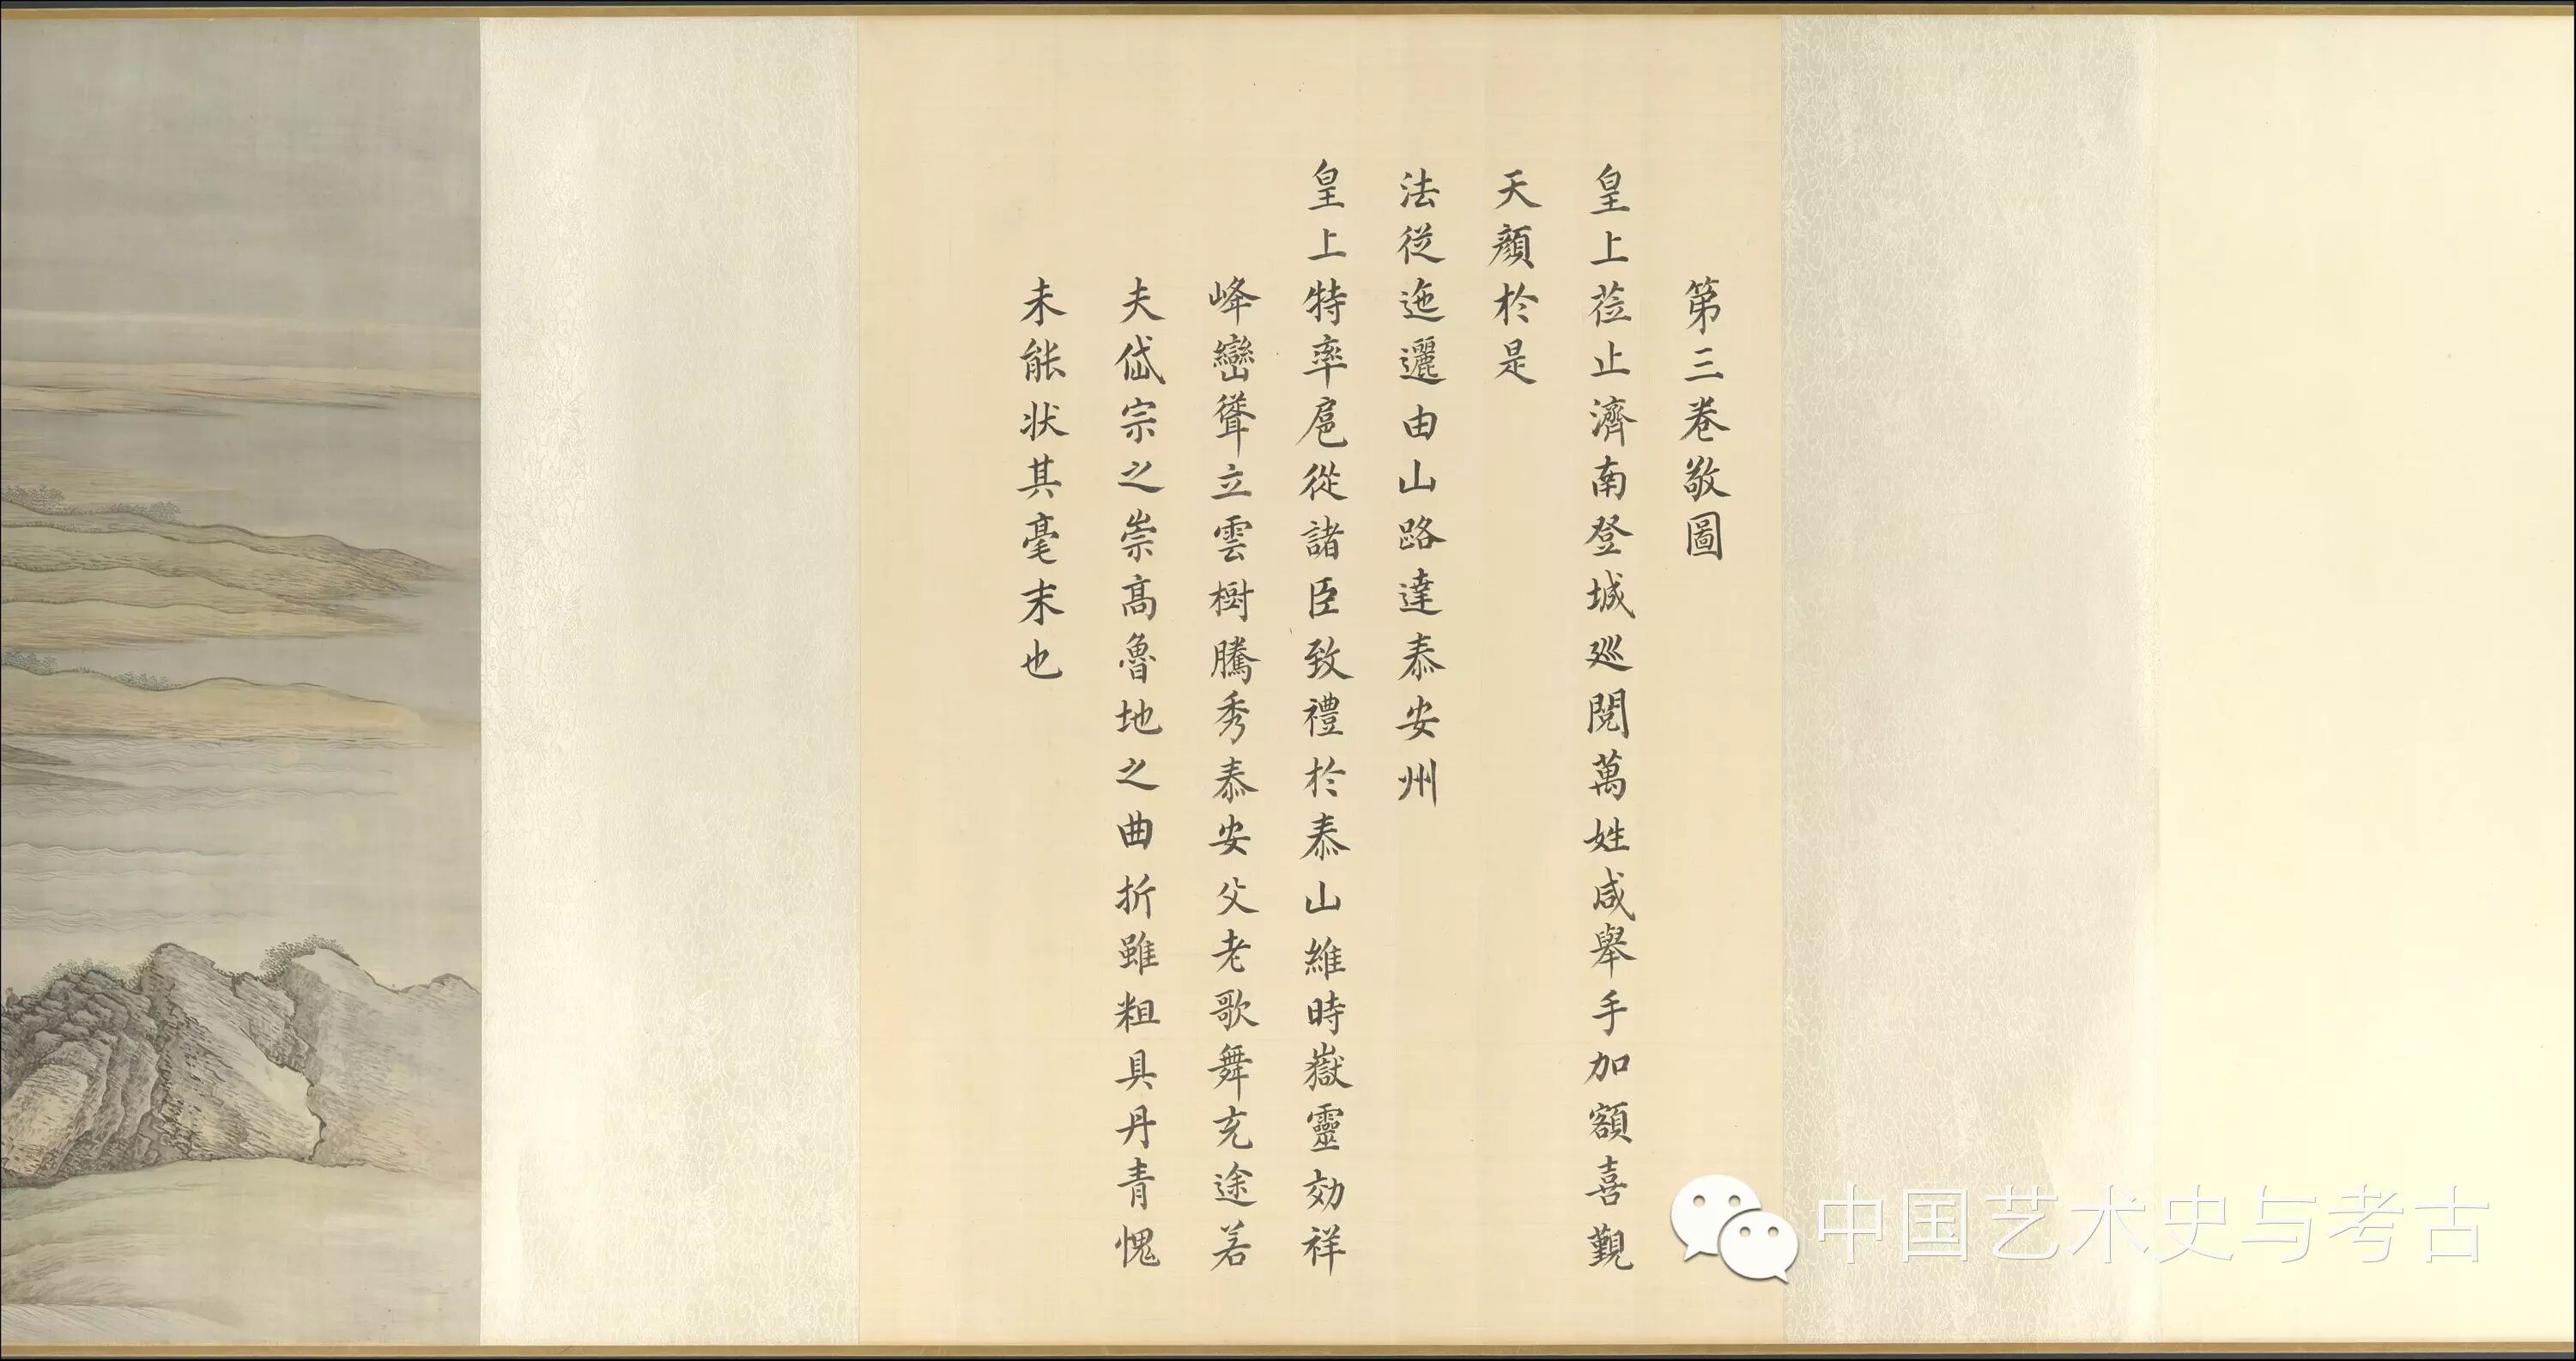 第三卷敬圖
皇上莅止濟南登城廵閱萬姓咸舉手加額喜覲
天顏於是
法從迤邐由山路達泰安州
皇上特率扈從諸臣致禮於泰山維時嶽靈効祥
峰巒聳立雲樹騰秀泰安父老歌舞充途若
夫岱宗之崇高魯地之曲折雖粗具丹青愧
未能狀其毫末也
中国艺术史与考古